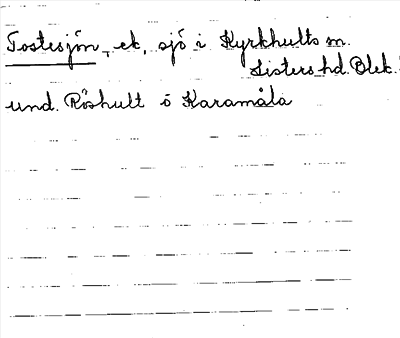 Tostesjön, ek, sjö i Kyrkhults sn.
Listers hd. Blek.
und. Röshult o Karamåla